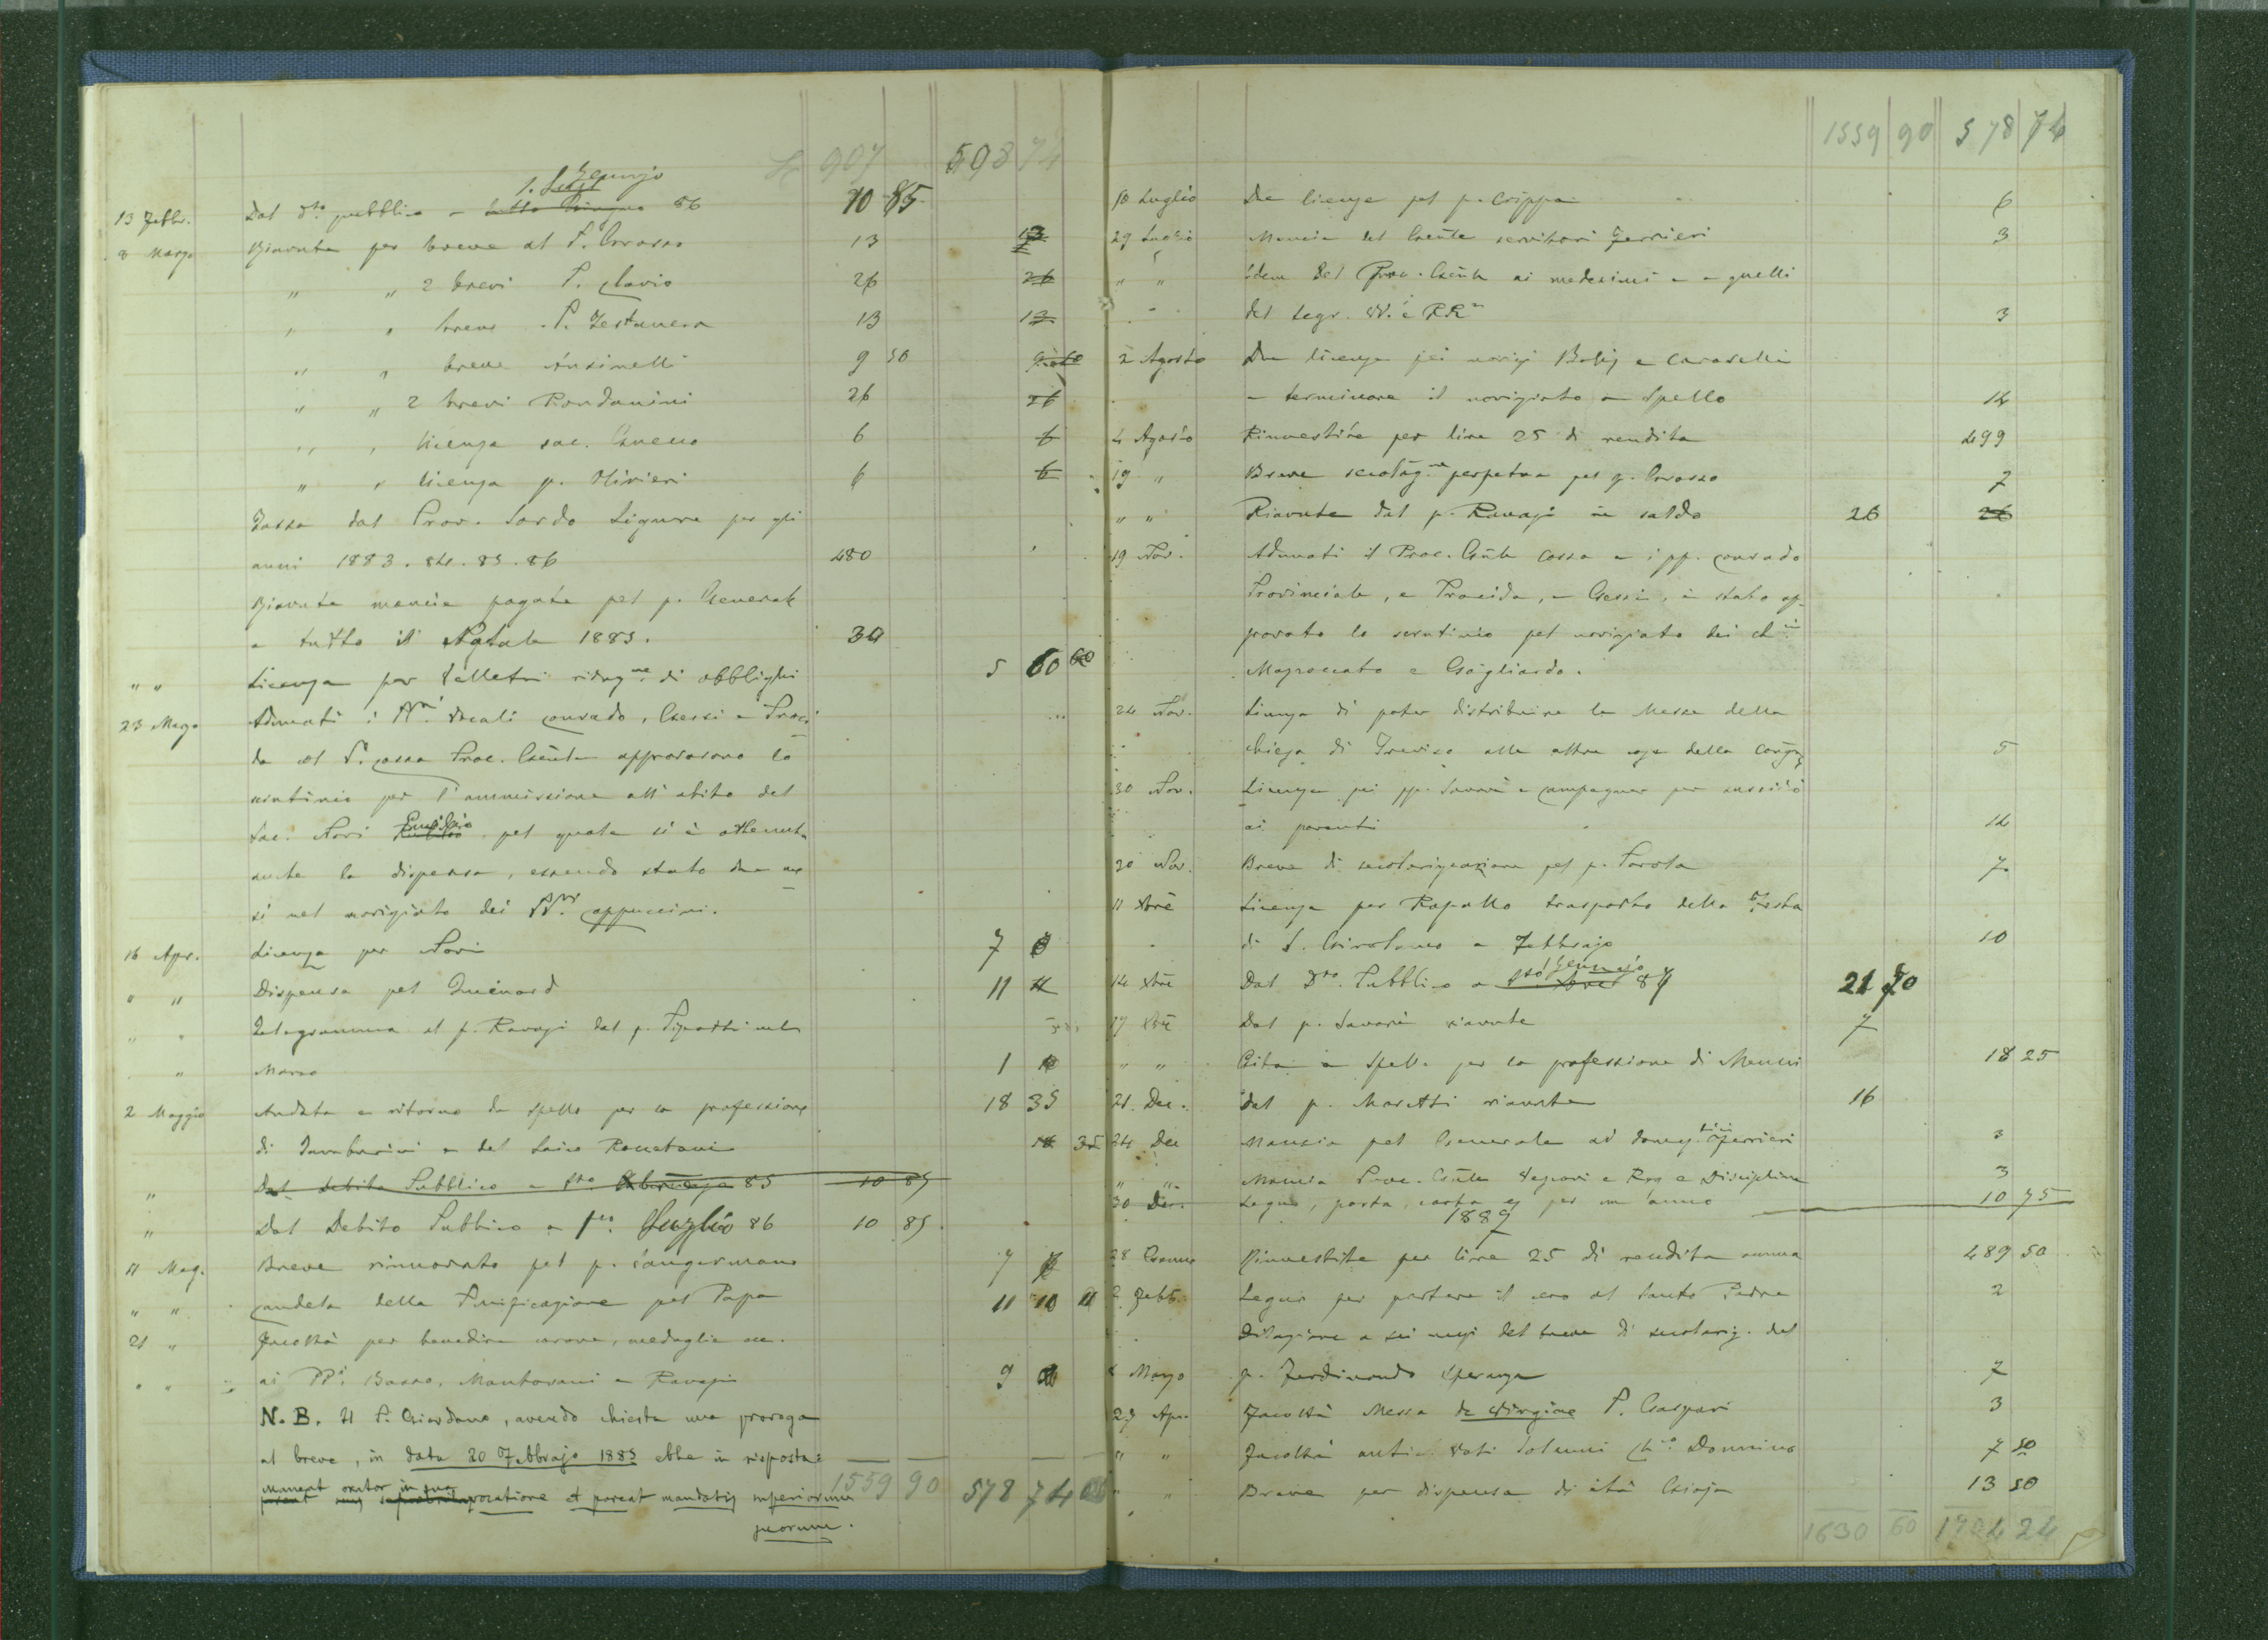 907 598 74
1. Gennajo
13 Febbr. Dal d.to pubblico a tutto Giugno 86 10 85
8 Marzo Riavute per breve al P. Grosso 13 13
" " 2 brevi P. Clavio 26 26
" " breve P. Testanera 13 13
" " breve Ansinelli 9 50
" " 2 brevi Rondanini 26 26
" " licenza sac. Cuneo 6 6
" " licenza p. Olivieri 6 6
Tassa dal Prov. Sardo Ligure per gli
anni 1883. 84. 85. 86 480
Riavute mancie pagate pel p. Generale
a tutto il Natale 1885. 30
" " Licenza per Velletri riduz.ne di obblighi 5 60 60
23 Marzo Adunati i vocali Conrado, Gessi e Proci
da col P. Cossa Proc. Gen.le approvarono lo
scrutinio per l'ammissione all'abito del
Sac. Nori Emidio pel quale si è ottenuta
anche la dispensa, essendo stato due me
si nel noviziato dei PP. Cappuccini.
16 Apr. Licenza per Nori 7
" " Dispensa pel Queinard 11 11
" " Telegramma al p. Ravasi dal p. nel
" Marzo 1
2 Maggio Andata e ritorno da Spello per la professione 18 35
di Tamburini e del laico Roncetani 18 35
" Dal debito Pubblico a p.mo 85 10 85
" Dal Debito Pubblico a p.mo Luglio 86 10 85
11 Mag. Breve rinnovato pel p. Sangermano 7
" " Candela della Purificazione pel Papa 11 10 11
21 " Facoltà per benedire corone, medaglie ecc.
" " ai PP. Basso, Mantovani e Ravasi 9
N. B. Il P. Giordano, avendo chiesta una proroga
al breve, in data 20 Febbrajo 1885 ebbe in risposta:
maneat orator in sua
vocatione et pareat mandatis superiorum
suorum.
1559 90 578 74
1559 90 578 74
10 Luglio Due licenze pel p. Crippa 6
29 Luglio Mancia del Gen.le servitori Ferrieri 3
" " Idem del Proc. Gen.le ai medesimi e a quelli
del Segr. VV. e RR. 3
2 Agosto Due licenze pei novizi Bolis e Caroselli
a terminare il noviziato a Spello 14
4 Agosto Rinvestite per lire 25 di rendita 499
19 " Breve secolariz.ne perpetua pel p. Grosso 7
" " Riavute dal p. Ravasi in saldo 26 26
19 Nov. Adunati il Proc. Gen.le Cossa e i pp. Conrado
Provinciale, e Procida, e Gessi, è stato ap-
provato lo scrutinio pel noviziato dei ch.ci
Moproccato e Gagliardo.
24 Nov. Licenza di poter distribuire le Messe della
chiesa di Treviso alle altre case della Congreg. 5
30 Nov. Licenza pei pp. Savarè e Campagner per sussidio
ai parenti 14
20 Nov. Breve di secolarizzazione pel p. Parola 7
11 Xbre Licenza per Rapallo trasporto della Festa
di S. Girolamo a Febbrajo 10
14 Xbre Dal D.to Pubblico a Gennajo 87 21 70
17 Xbre Dal p. Savarè riavute 7
" " Gita a Spello per la professione di Menini 18 25
21 Dec. Dal p. Moretti riavute 16
24 Dec Mancia pel Generale ai domestici Ferrieri 3
" " Mancia Proc. Gen.le Vescovi e Reg e Disciplina 3
30 Dec. Legno, posta, carta ec per un anno 10 75
1887
28 Genn Rinvestite per lire 25 di rendita annua 489 50
2 Febb. Legno per portare il cero al Santo Padre 2
Dilazione a sei mesi del breve di secolariz. del
Marzo p. Ferdinando Speranza 7
29 Apr. Facoltà Messa de Virgine P. Gaspari 3
" " Facoltà antic. Voti Solenni Ch.co Donnino 7 50
" " Breve per dispensa di età Gioja 13 50
1630 60 1704 24